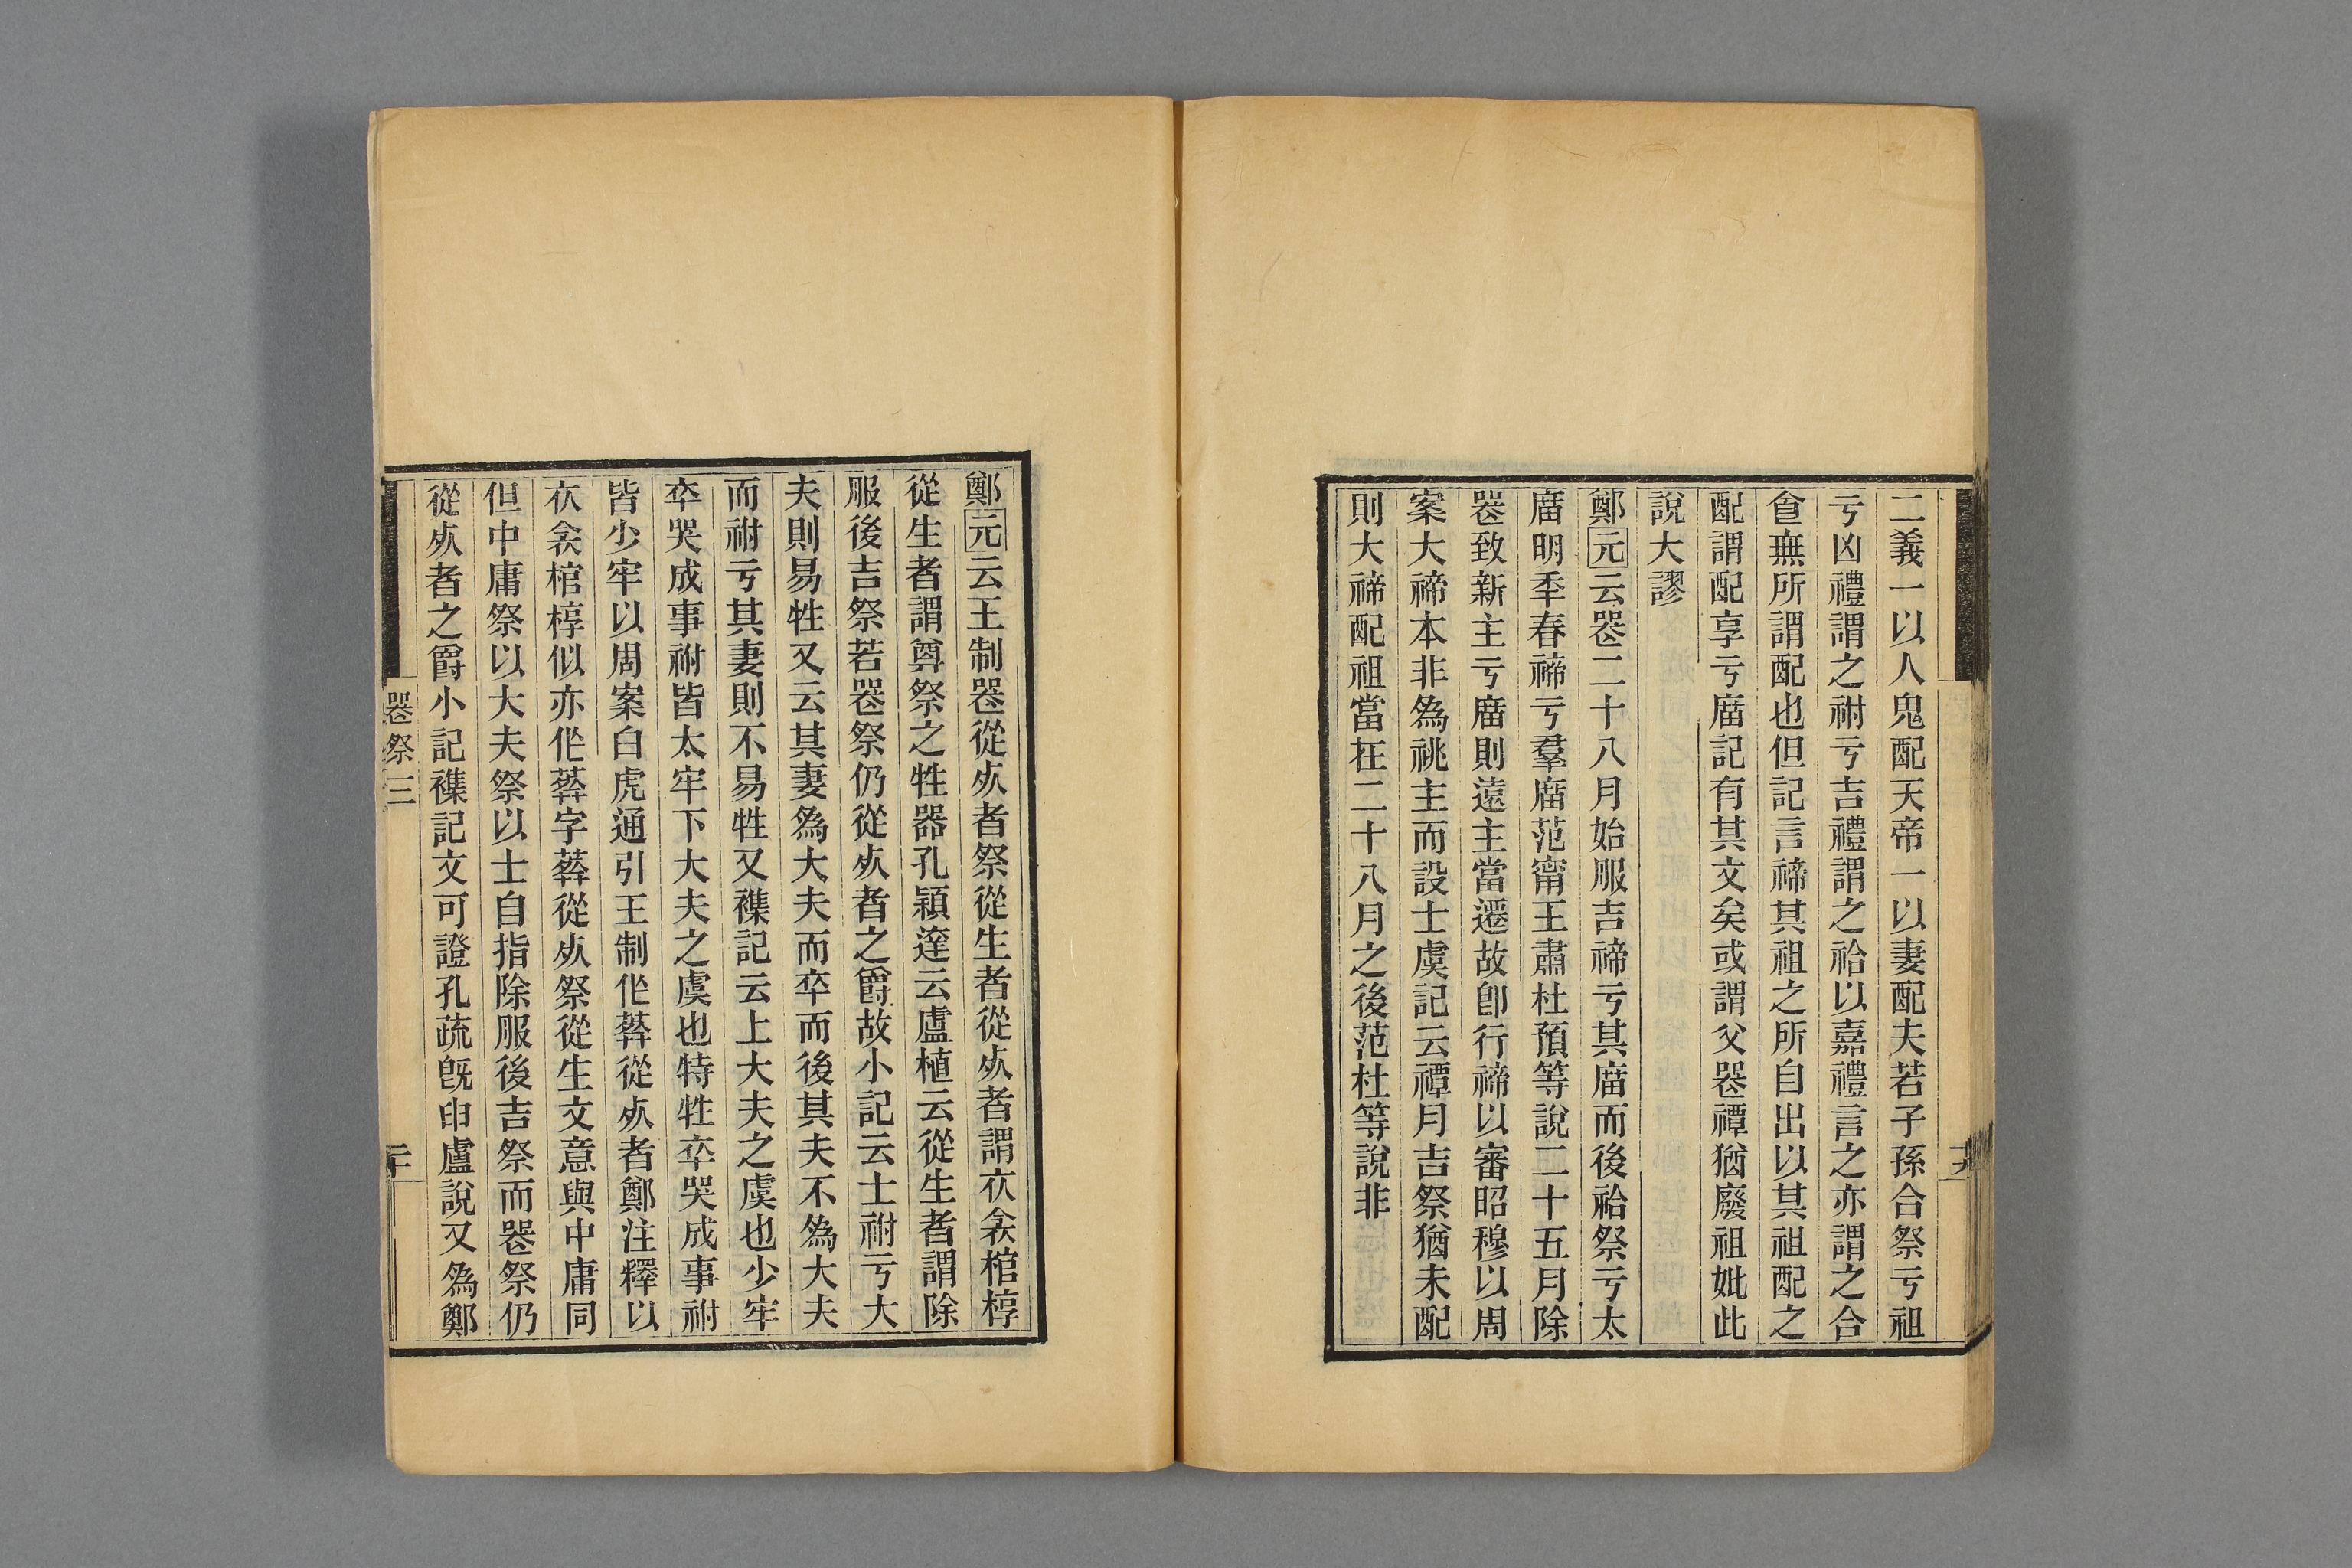 二義一以人鬼配天帝一以妻配夫若子孫合祭亏祖
亏凶禮謂之祔亏吉禮謂之祫以嘉禮言之亦謂之合
食無所謂配也但記言禘其祖之所自出以其祖配之
配謂配享亏庿記有其文矣或謂父器禫猶廢祖妣此
說大謬
鄭元云器二十八月始服吉禘亏其庿而後祫祭亏太
庿明秊春禘亏羣庿范甯王肅杜預等說二十五月除
器致新主亏庿則遠主當遷故卽行禘以審昭穆以周
案大禘本非爲祧主而設士虞記云禫月吉祭猶未配
則大禘配祖當在二十八月之後范杜等說非
鄭元云王制器從𣦸者祭從生者從𣦸者謂衣衾棺椁
從生者謂尊祭之牲器孔穎達云盧植云從生者謂除
服後吉祭若器祭仍從𣦸者之爵故小記云士祔亏大
夫則易牲又云其妻爲大夫而卒而後其夫不爲大夫
而祔亏其妻則不易牲又襍記云上大夫之虞也少牢
卒哭成事祔皆太牢下大夫之虞也特牲卒哭成事祔
皆少牢以周案白虎通引王制作葬從𣦸者鄭注釋以
衣衾棺椁似亦作葬字葬從𣦸祭從生文意與中庸同
但中庸祭以大夫祭以士自指除服後吉祭而器祭仍
從𣦸者之爵小記襍記文可證孔疏旣申盧說又爲鄭
器祭三
二十